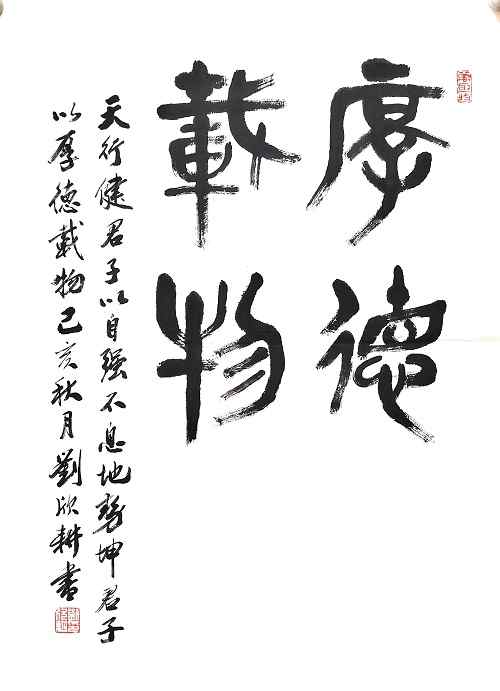 厚德
載物
天行健君子以自强不息地勢坤君子
以厚德載物己亥秋月劉欣耕書